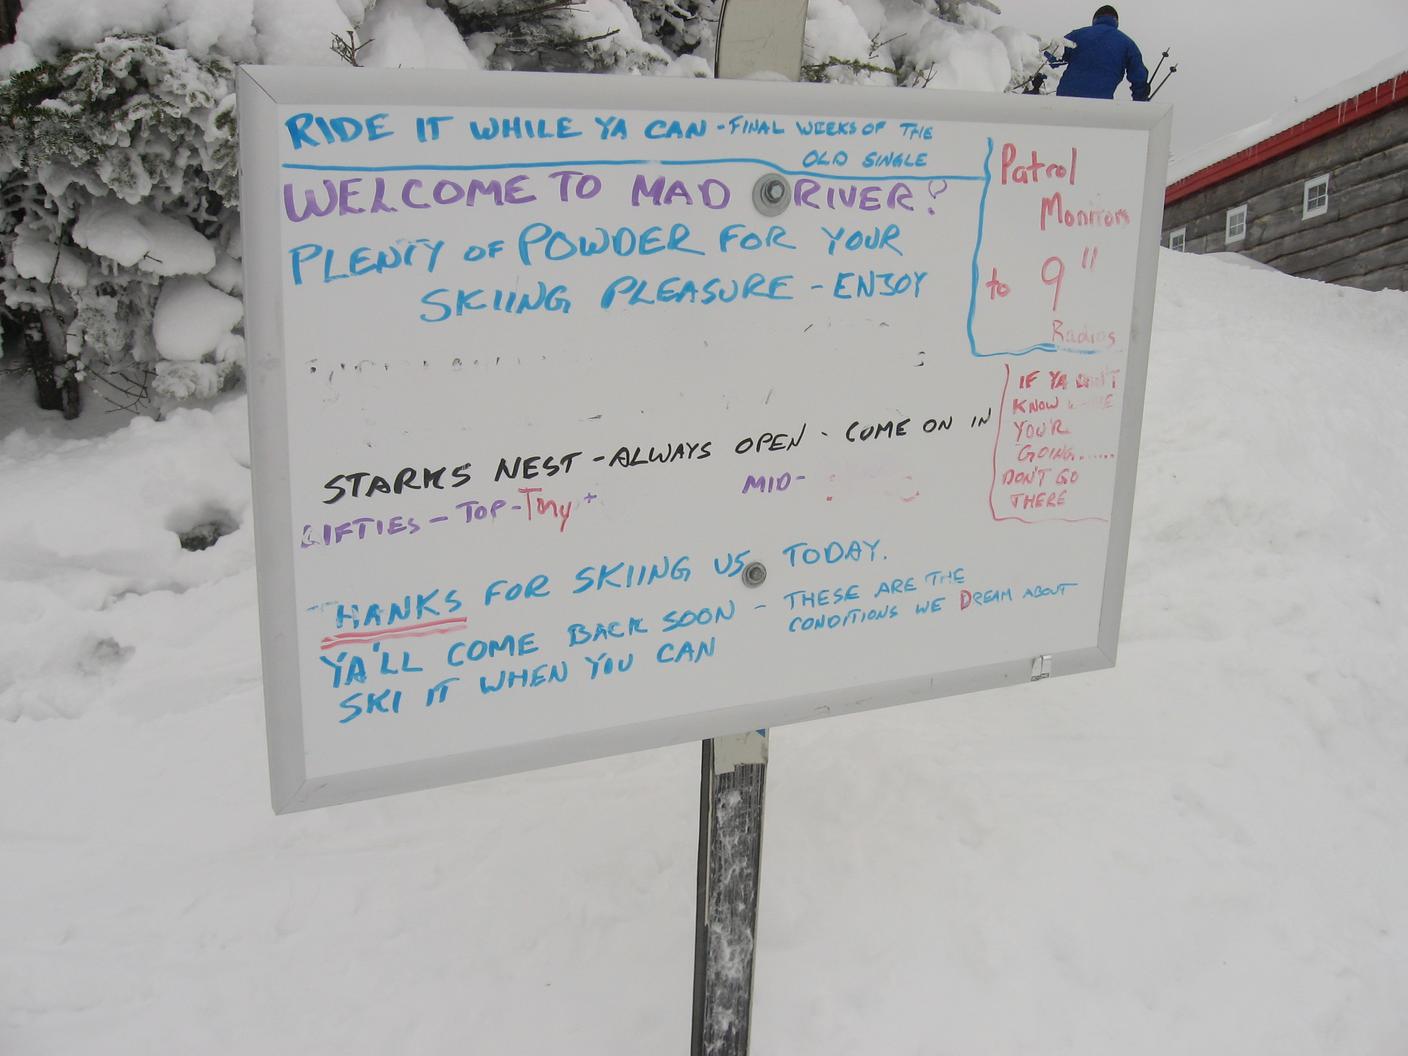 RIDE IT WHILE YA CAN - FINAL WEEKS OF THE
OLD SINGLE
WELCOME TO MAD RIVER!
PLENTY OF POWDER FOR YOUR
SKIING PLEASURE - ENJOY
Patrol
Monitors
to 9"
Radios
IF YA DON'T
KNOW
YOU'R
GOING......
DON'T GO
THERE
STARKS NEST - ALWAYS OPEN - COME ON IN
LIFTIES - TOP - Tony +
MID-
THANKS FOR SKIING US TODAY.
YA'LL COME BACK SOON - THESE ARE THE
CONDITIONS WE DREAM ABOUT
SKI IT WHEN YOU CAN